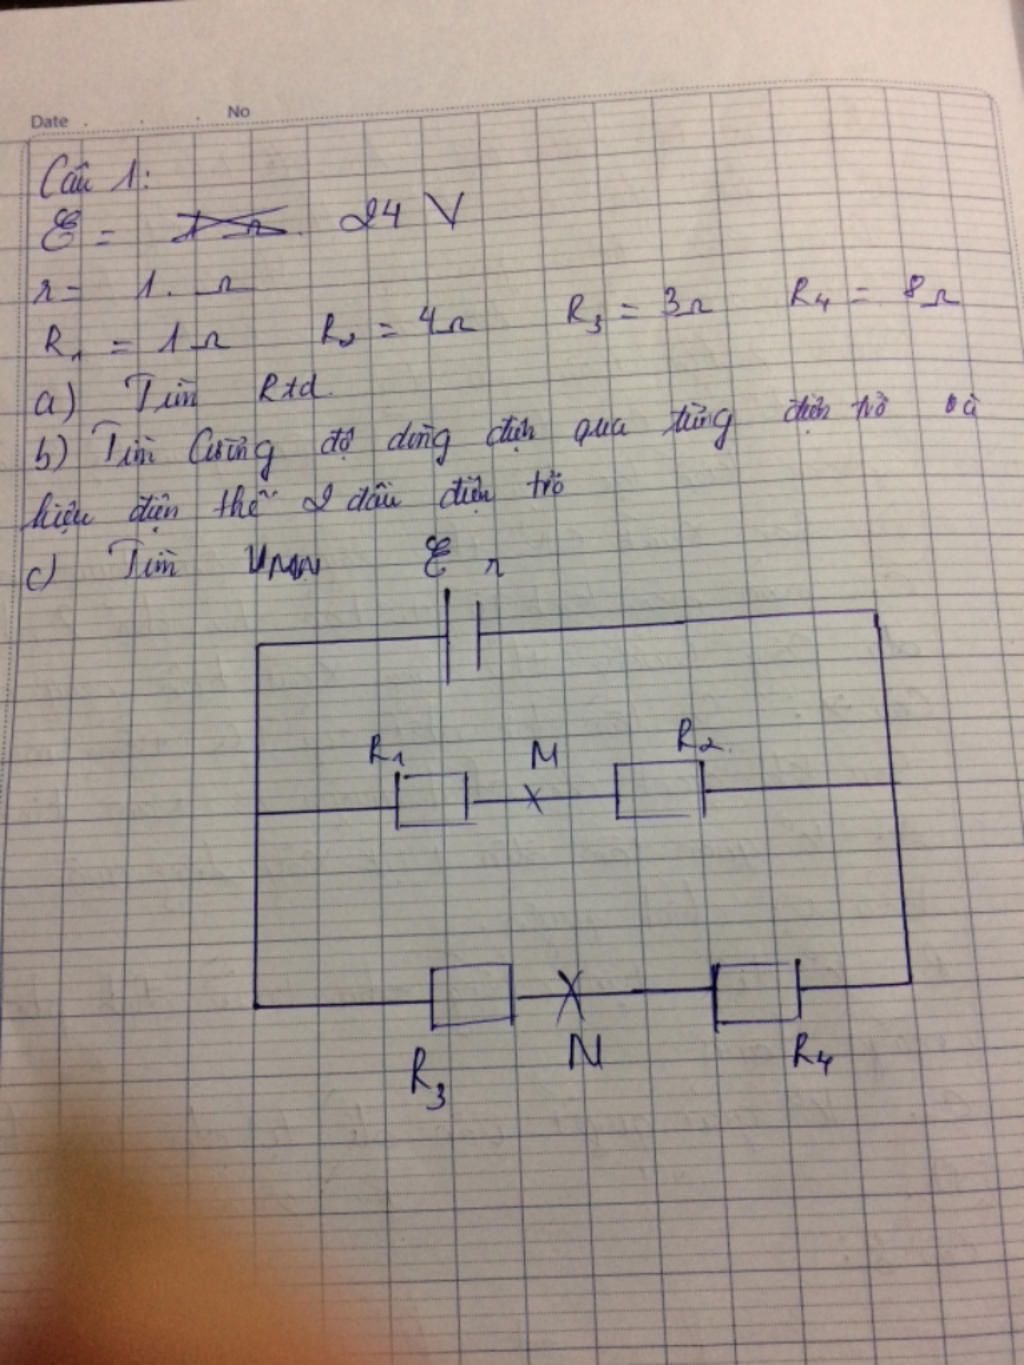 Date No
Câu 1:
ℰ = 24 V
r = 1. Ω
R₁ = 1 Ω R₂ = 4 Ω R₃ = 3 Ω R₄ = 8 Ω
a) Tìm Rtđ.
b) Tìm Cường độ dòng điện qua từng điện trở và
hiệu điện thế 2 đầu điện trở
c) Tìm UMN
ℰ r
R₁ M R₂
N
R₃ R₄